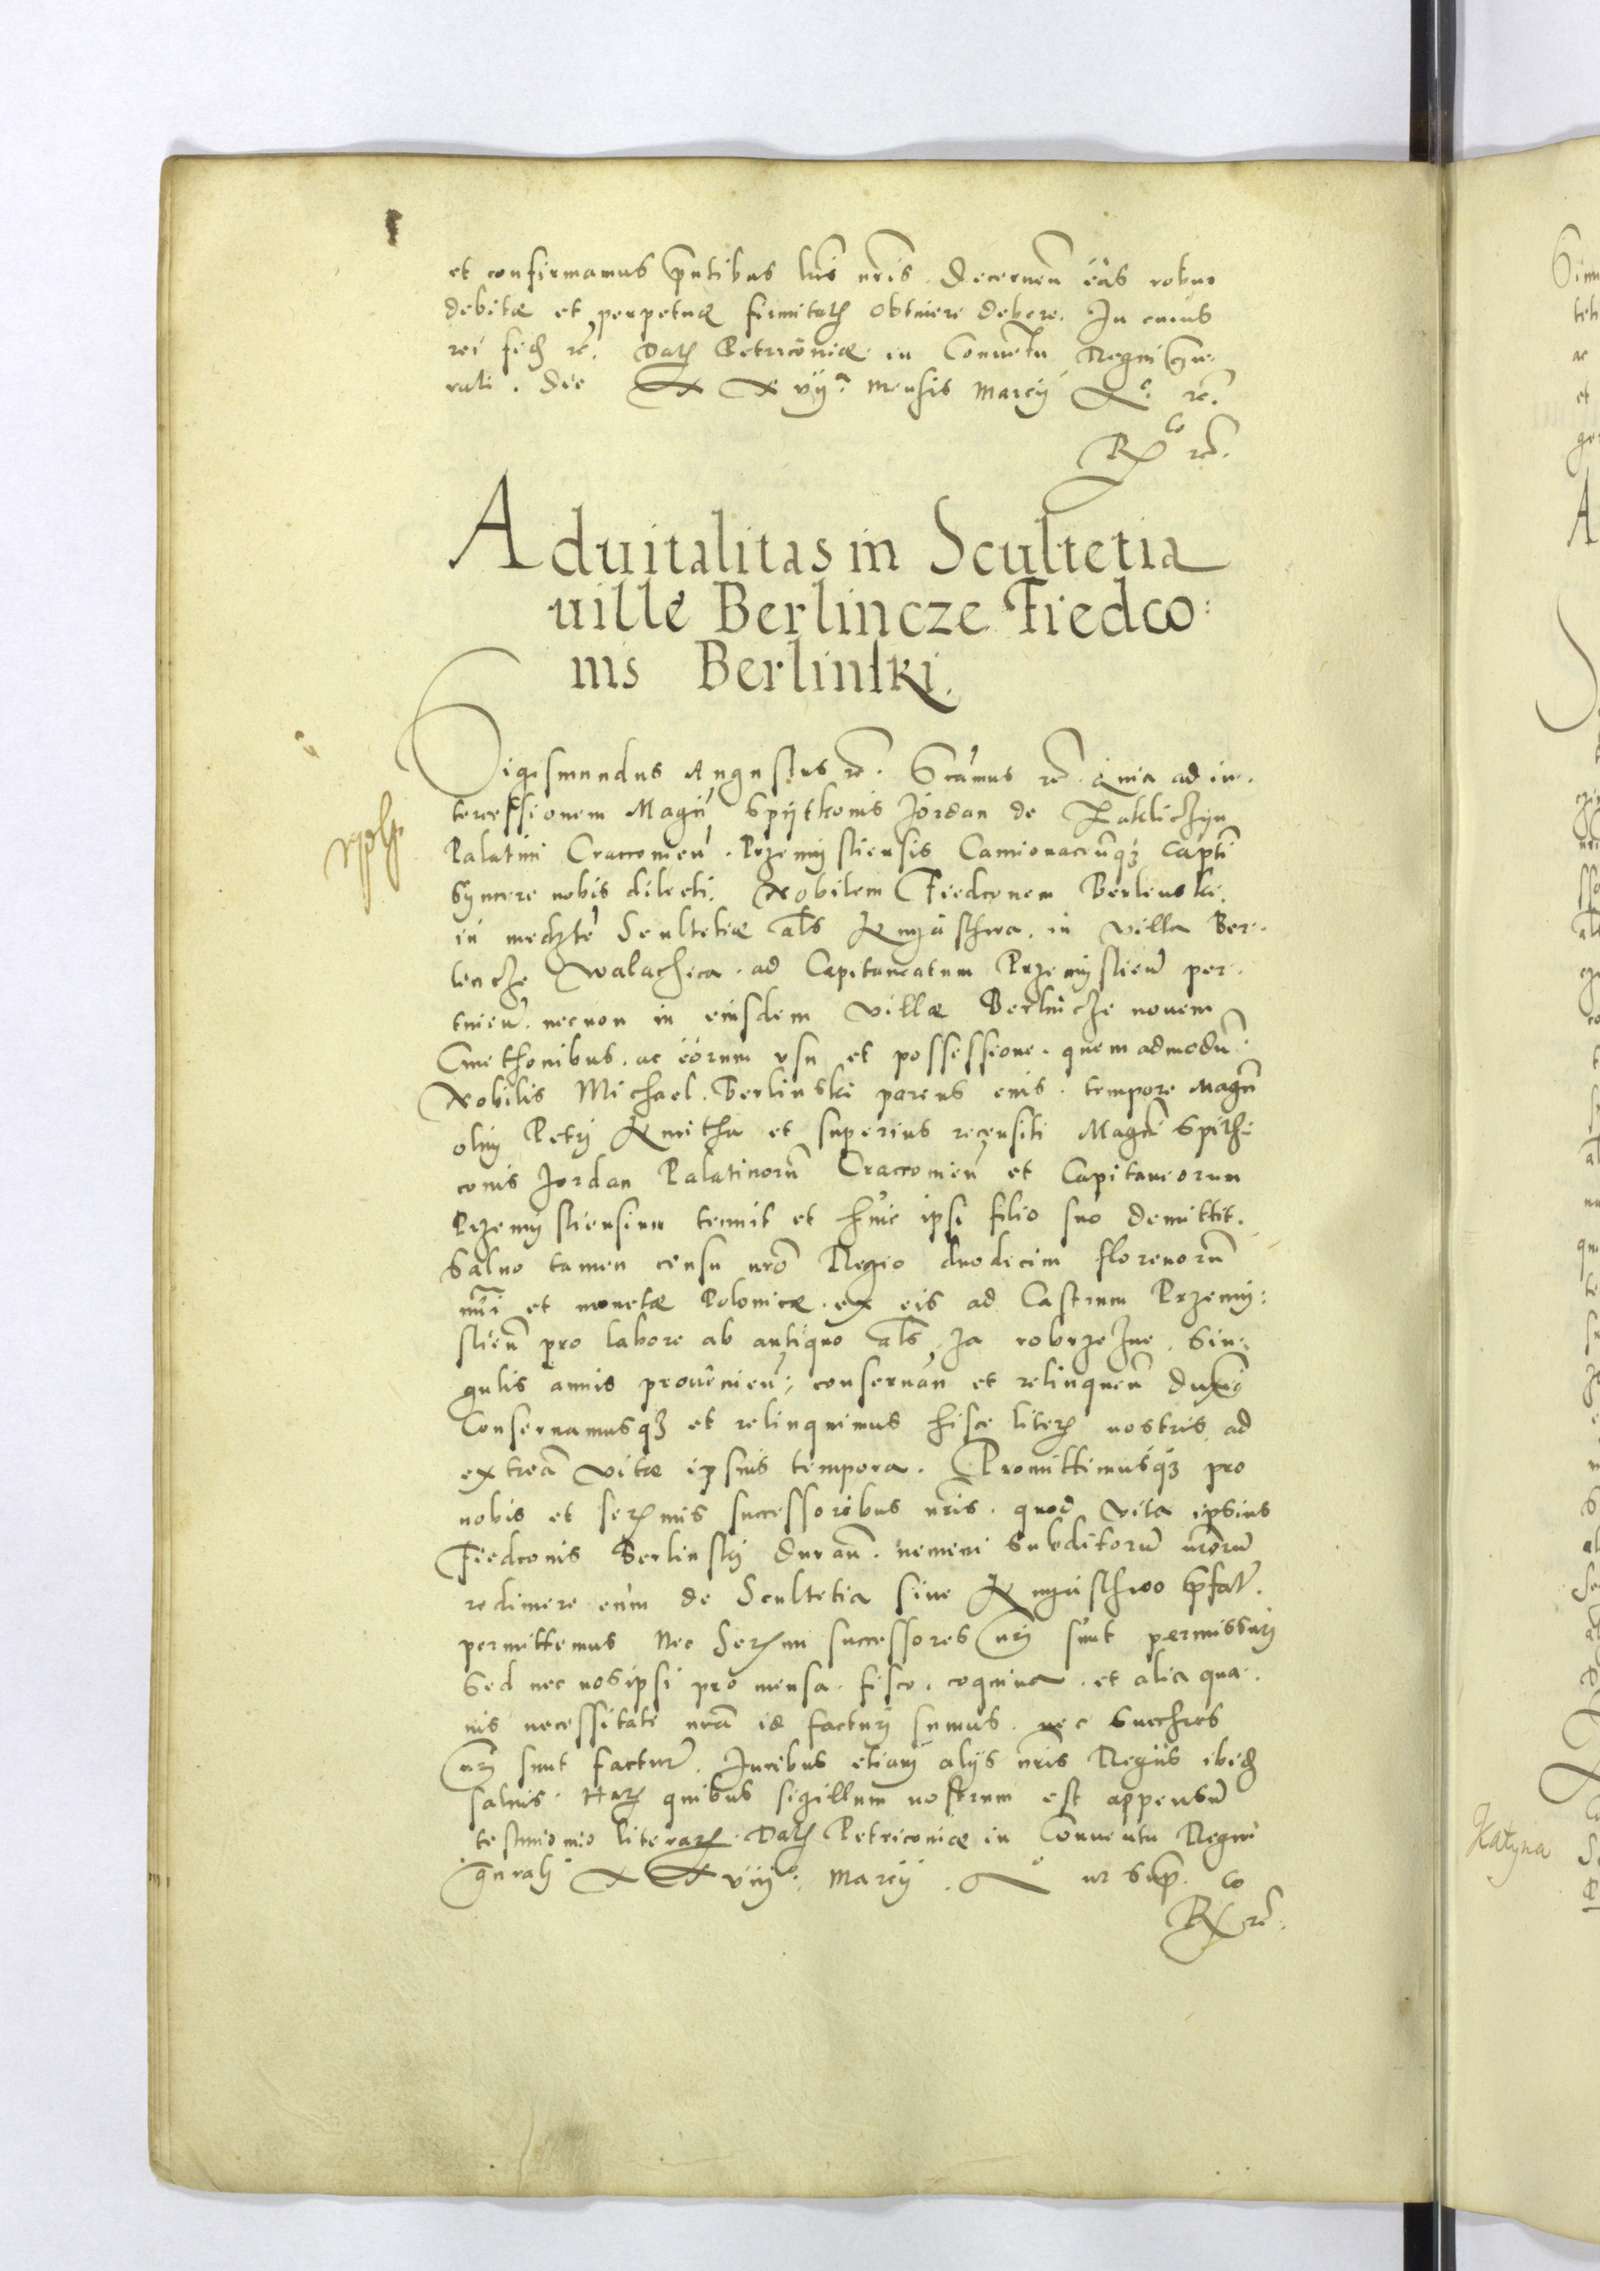 et confirmamus pntibus lris nris. Decernen eas robur
debitæ et perpetuæ firmitatis obtinere debere. In cuius
rei fidem rc. Datum Petricouiæ in Conuetu Regni gne:
rali. die XXvij a mensis Marcij Lo. rc.
Rx co rc.
Aduitalitas in Scultetia
uille Berlincze Fiedco:
nis Berlinski.
Sigismundus Augustus rc. Scamus rc. Quia ad in-
tercessionem Magci Spijtkonis Jordan de Zaklichzyn
Palatini Craccouien. Przemijsliensis Camionacenqz Capti
syncere nobis dilecti. Nobilem Fiedconem Berlenski.
in medzte Scultetiæ als Knyasthwa. in villa Ber-
lencze walachica. ad Capitaneatum Przemijslien per-
tinen. necnon in eiusdem villæ Berlincze nouem
Cmethonibus. ac eorum vsu et possessione. quemadmodu
Nobilis Michael. Berlinski parens eius. tempore Magci
olim Petri Kmitha et superius recensiti Magci Spith-
conis Jordan Palatinoru Craccouien et Capitaneorum
Przemijsliensium tenuit et huic ipsi filio suo demittit.
Saluo tamen censu nro Regio duodecim florenoru
nri et monetæ Polonicæ. ex eis ad Castrum Przemij:
slien pro labore ab antiquo als, za robrzezne. Sin-
gulis annis prouenien; conseruan et relinquen duxi
Conseruamusqz et relinquimus hisce literis nostris ad
extrea vitæ ipsius tempora. Promittimusqz pro
nobis et sermis successoribus nris. quod vita ipsius
Fiedconis Berlinskij duran. nemini Subditoru nroru
redimere eum de Scultetia siue Knyasthwo prefat.
permittemus nec Sermi successores nri sunt permissuri
Sed nec nos ipsi pro mensa. fisco. coquina. et alia qua-
uis necessitate nra id facturi sumus. nec succhres
nri sunt factur. Juribus etiam alijs nris Regiis ibidem
saluis. Harum quibus sigillum nostrum est appensu
testimonio literarum. Datum Petricouiæ in Conuentu Regni
gnrali XXviij. Marcij. Lo ut Sup. co
Rx rc.
Katyna